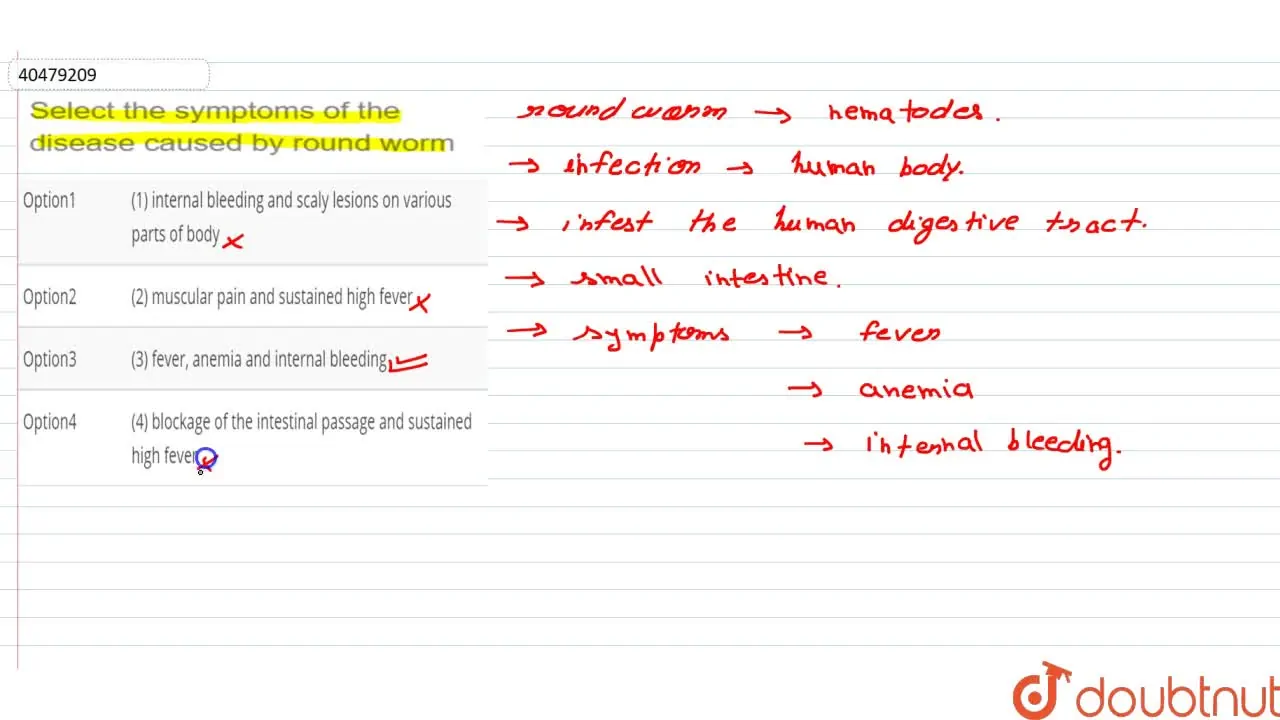 40479209
Select the symptoms of the
disease caused by round worm
Option1 (1) internal bleeding and scaly lesions on various
parts of body
Option2 (2) muscular pain and sustained high fever
Option3 (3) fever, anemia and internal bleeding
Option4 (4) blockage of the intestinal passage and sustained
high fever
round worm → nematodes.
→ infection → human body.
→ infest the human digestive tract.
→ small intestine.
→ symptoms → fever
→ anemia
→ internal bleeding.
doubtnut